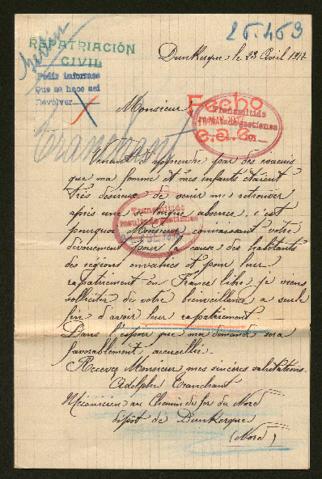 25.453
REPATRIACIÓN
CIVIL
Pedir informes
Que se hace así
Devolver
Dunkerque, le 23 Avril 1917
Monsieur
Fecho
Transmitido
resultado gestiones
Tranchant
Venant d'apprendre par des voisins
que ma femme et mes enfants étaient
très désireux de venir me retrouver
après une si longue absence, c'est
pourquoi Monsieur connaissant votre
dévouement pour la cause des habitants
des régions envahies et pour leur
rapatriement en France libre je viens
solliciter de votre bienveillance à seule
fin d'avoir leur rapatriement
Dans l'espoir que ma demande sera
favorablement accueillie.
Recevez Monsieur mes sincères salutations.
Adolphe Tranchant
Mécanicien au Chemin de fer du Nord
Dépôt de Dunkerque
(Nord)